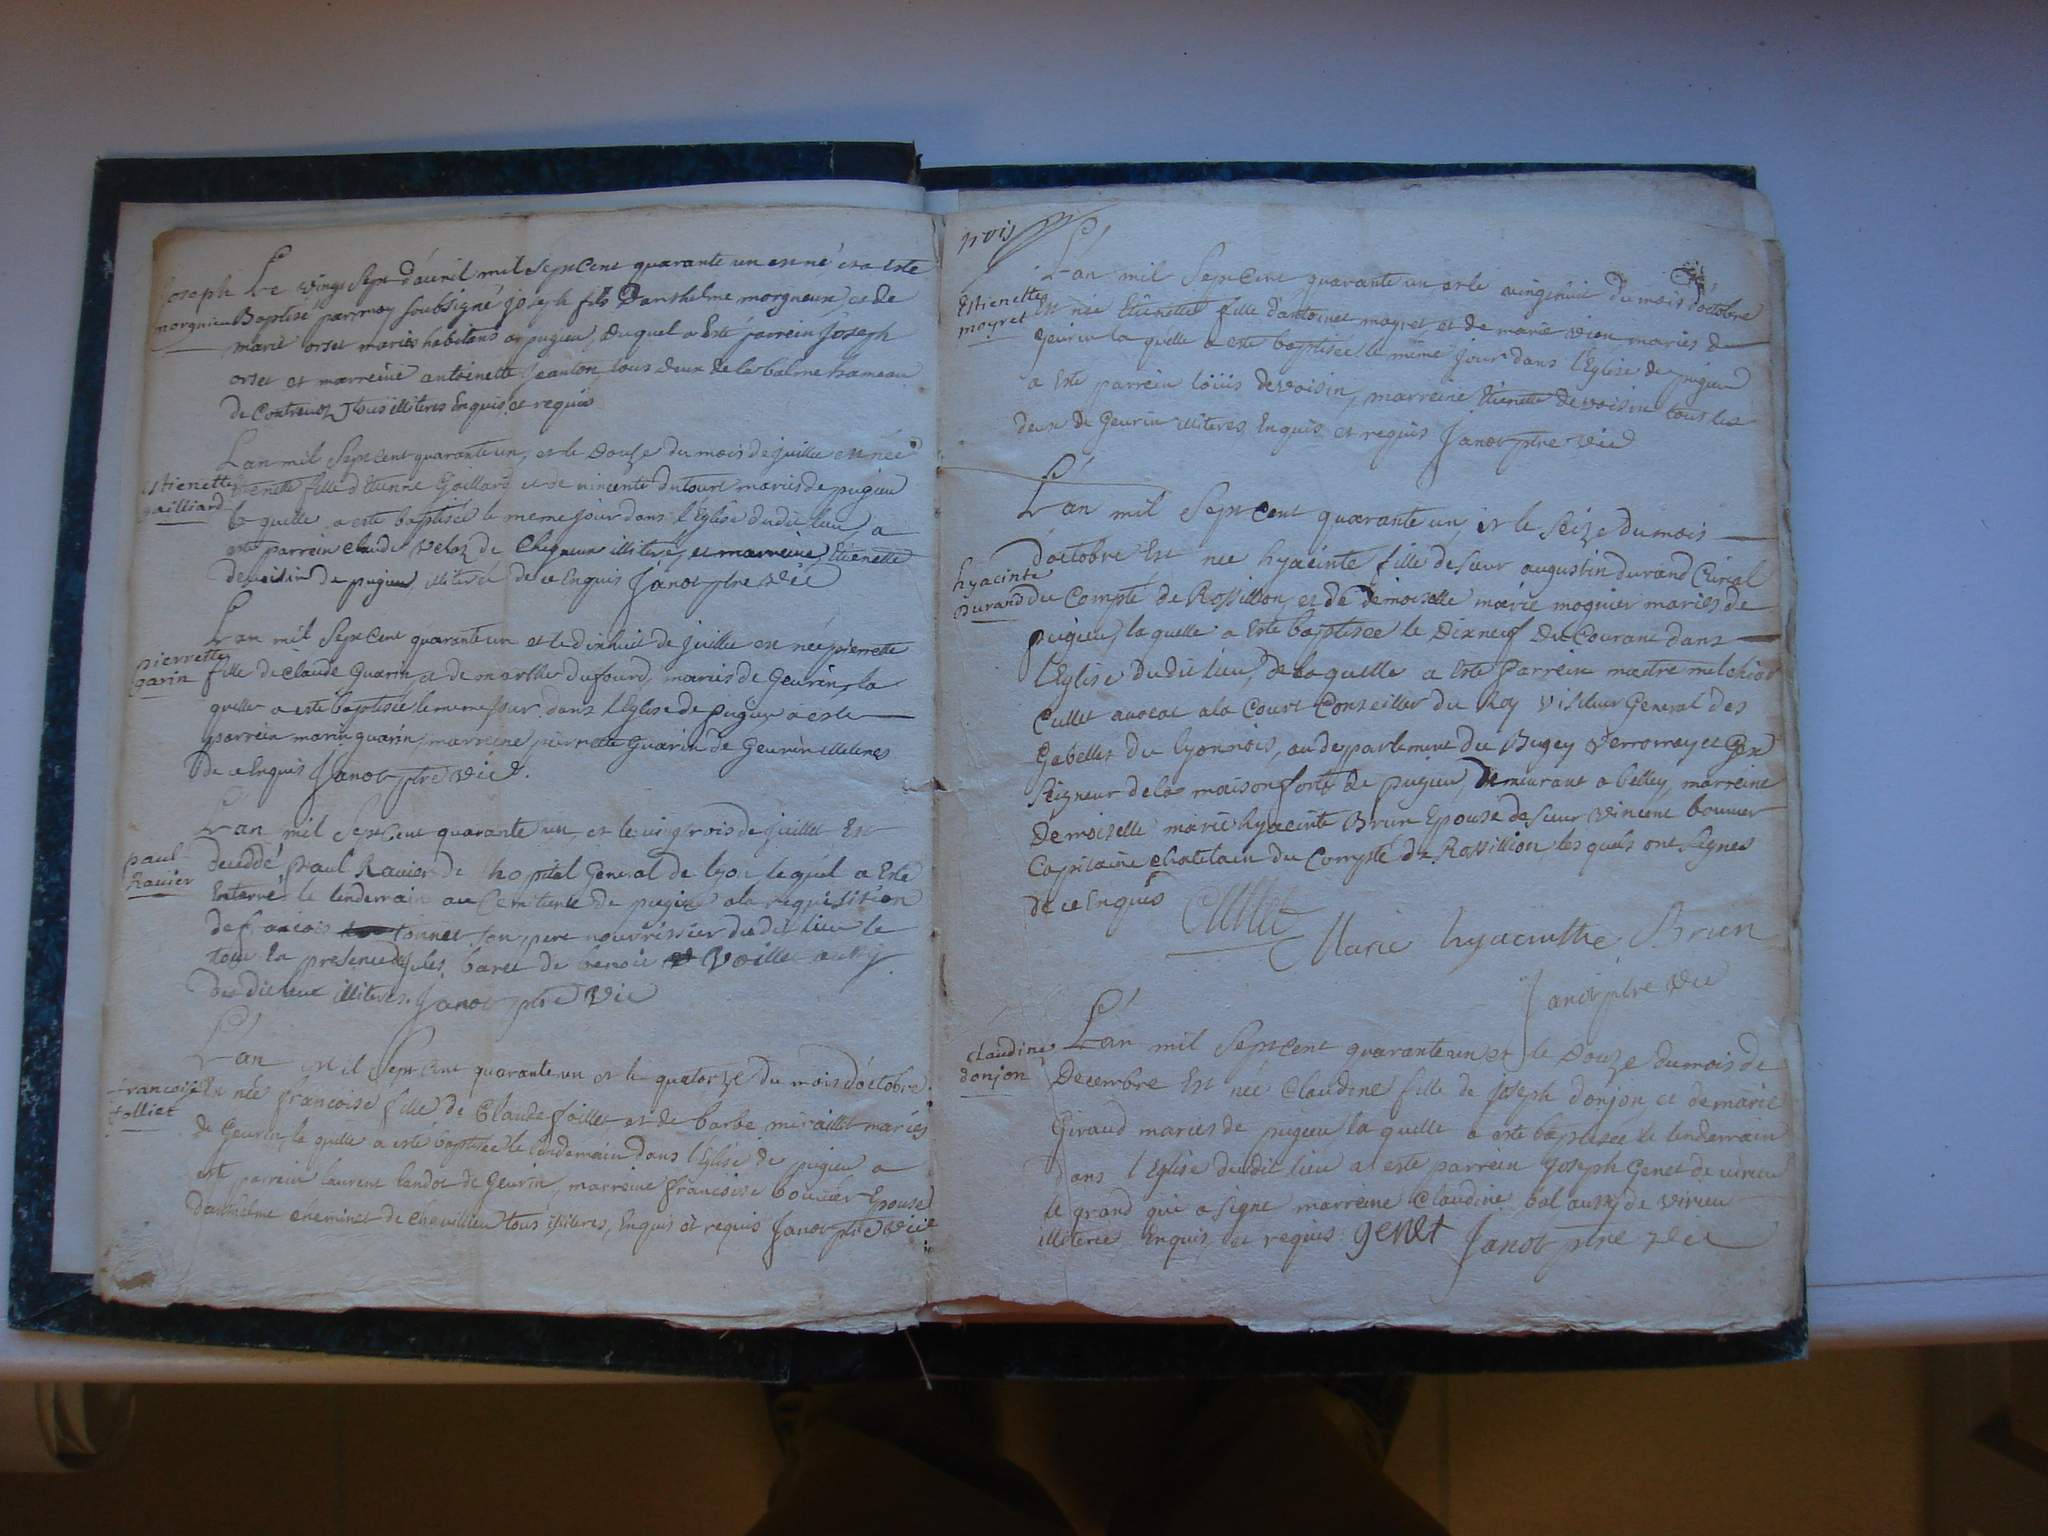 Joseph
morgnieu
Le vingt Sept d'avril mil Sept Cent quarante un est né et a esté
Baptisé par moy soubsigné joseph fils Danthelme morgneux, et de
marie orset mariés habitans a pugieu, Duquel a Esté parrein Joseph
orset et marreine antoinette Jeanton, tous deux de la balme hameau
de Contrevoz tous illiteres Enquis et requis
Estienette
gailliard
L'an mil Sept cent quarante un, et le Douze du mois de juillet est née
Etienette fille d'Etienne Gaillard et de vincente dutourt mariés de pugieu
la quelle a este baptisée le meme jour dans l'Eglise dudit lieu, a
este parrein claude Velaz de Cheyneux illitéré, et marreine, Etienette
devoisin de pugieu, illiterée de ce Enquis Janot ptre vic
pierrette
garin
L'an mil Sept Cent quarante un et le dixhuit de juillet est née pierrette
fille de claude Guarin, et de marthe dufourd, mariés de Geurin, la
quelle a esté baptisée le meme jour dans l'Eglise de pugieu a este
parrein marin guarin, marreine, pierrette Guarin de Geurin illiteres
de ce Enquis Janot ptre vic.
paul
Ravier
L'an mil Sept Cent quarante un, et le vingt trois de juillet Est
decedé, paul Ravier de l'hopital General de lyon lequel a Esté
Enterré le lendemain au Cemitiere de pugieu a la requisition
de francois tonnet son pere nourrissier dudit lieu le
tout En presence de baret de benoit Voillet aussy
dudit lieu illiteres. Janot ptre Vic
francoise
folliet
L'an mil Sept Cent quarante un et le quatorze du mois d'octobre
Est née francoise fille de Claude foillet et de barbe miraillet mariés
de Geurin, la quelle a esté baptisée le lendemain dans l'Eglise de pugieu a
esté parrein laurent landot de Geurin, marreine francoise bouvier Epouse
d'anthelme cheminet de Chavillieu tous illiteres, Enquis et requis Janot ptre vic
trois
Estienette
moyret
L'an mil Sept Cent quarante un et le vingt huit du mois d'octobre
est née Etienette fille d'antoine moyret, et de marie vion mariés de
Geurin la quelle a este baptisée le même jour dans l'Eglise de pugieu
a este parrein loüis devoisin, marreine Etienette devoisin tous les
deux de Geurin illiteres Enquis et requis Janot ptre vic
hyacinte
Durand
L'an mil Sept Cent quarante un, et le Seize du mois
d'octobre Est née hyacinte fille de Sieur augustin durand Curial
du Compté de Rossillion, et de demoiselle marie mognier mariés de
pugieu, la quelle a Esté baptisée le Dixneuf du Courant dans
l'Eglise dudit lieu, de la quelle a esté parrein maitre melchior
Cullet avocat a la Court Conseiller du Roy Visiteur General des
Gabelles du lyonnois, au departement du Bugey Verromey et Gex
Seigneur de la maison forte de pugieu, demeurant a belley, marreine
demoiselle marie hyacinte Brun Epouse de Sieur Vincent bouvier
Capitaine chatelain du Compté de Rossillion, les quels ont Signés
de ce Enquis Cullet
Marie hyacinthe Brun
Janot ptre vic
claudine
donjon
L'an mil Sept Cent quarante un et le Douze du mois de
Decembre Est née Claudine fille de Joseph donjon, et de marie
Giraud mariés de pugieu la quelle a este baptisée le lendemain
dans l'Eglise dudit lieu a este parrein Joseph Genet de virieu
le grand qui a signé marreine Claudine bal aussy de Virieu
illiterée Enquis, et requis genet Janot ptre vic